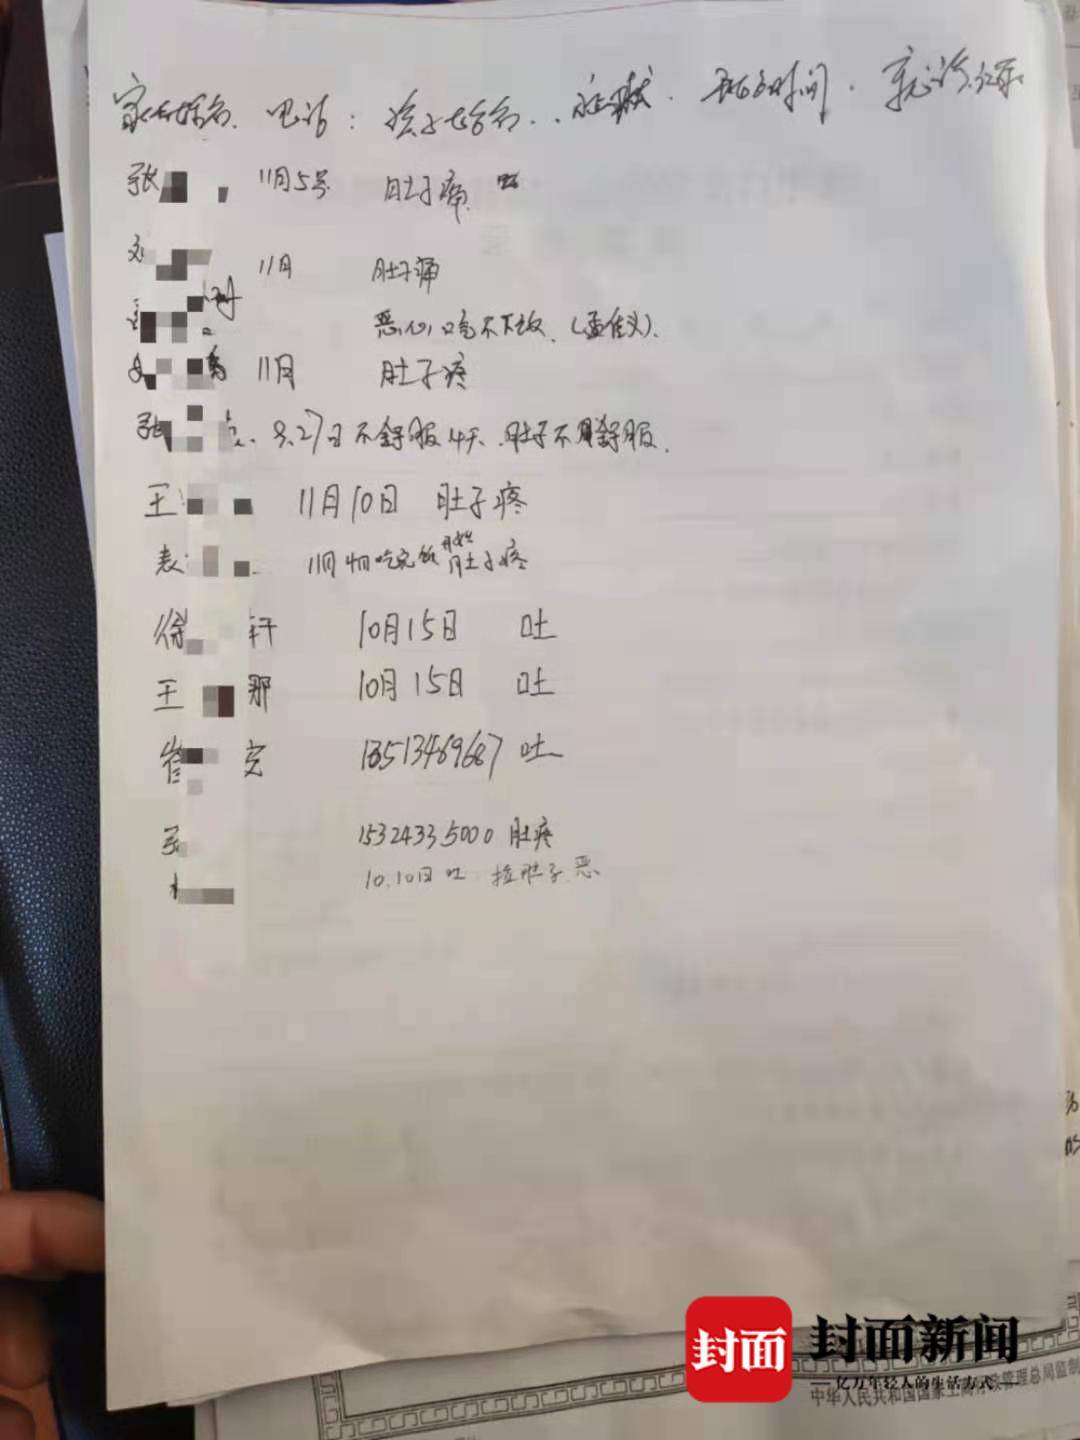 家长姓名. 电话: 孩子姓名.. 症状. 时间. 就诊记录
张 11月5号 肚子痛
刘 11月 肚子痛
恶心, 吃不下饭. (孟佳义).
11月 肚子疼
张 8.27日 不舒服4天. 肚子不舒服.
王 11月10日 肚子疼
袁 11月4日 吃完饭 肚子疼
徐 轩 10月15日 吐
王 那 10月15日 吐
崔 13513469687 吐
1532433 5000 肚疼
10.10日 吐 拉肚子 恶
封面 封面新闻
亿万年轻人的生活方式
中华人民共和国国家工商行政管理总局监制